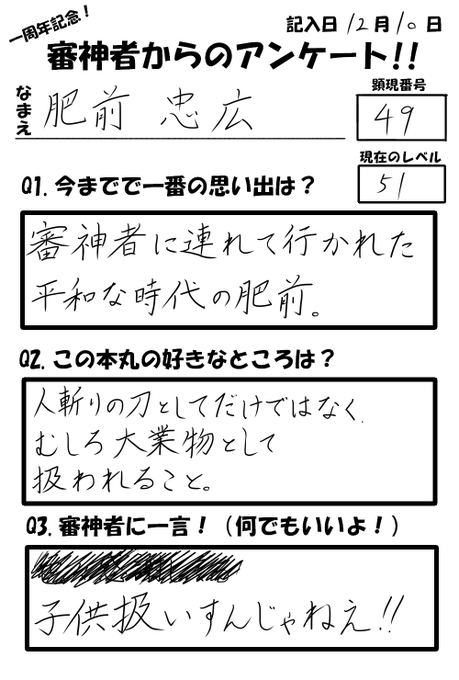 一周年記念！
記入日 12月10日
審神者からのアンケート!!
なまえ 肥前 忠広
顕現番号
49
現在のレベル
51
Q1. 今までで一番の思い出は？
審神者に連れて行かれた
平和な時代の肥前。
Q2. この本丸の好きなところは？
人斬りの刀としてだけではなく、
むしろ大業物として
扱われること。
Q3. 審神者に一言！（何でもいいよ！）
子供扱いすんじゃねえ!!